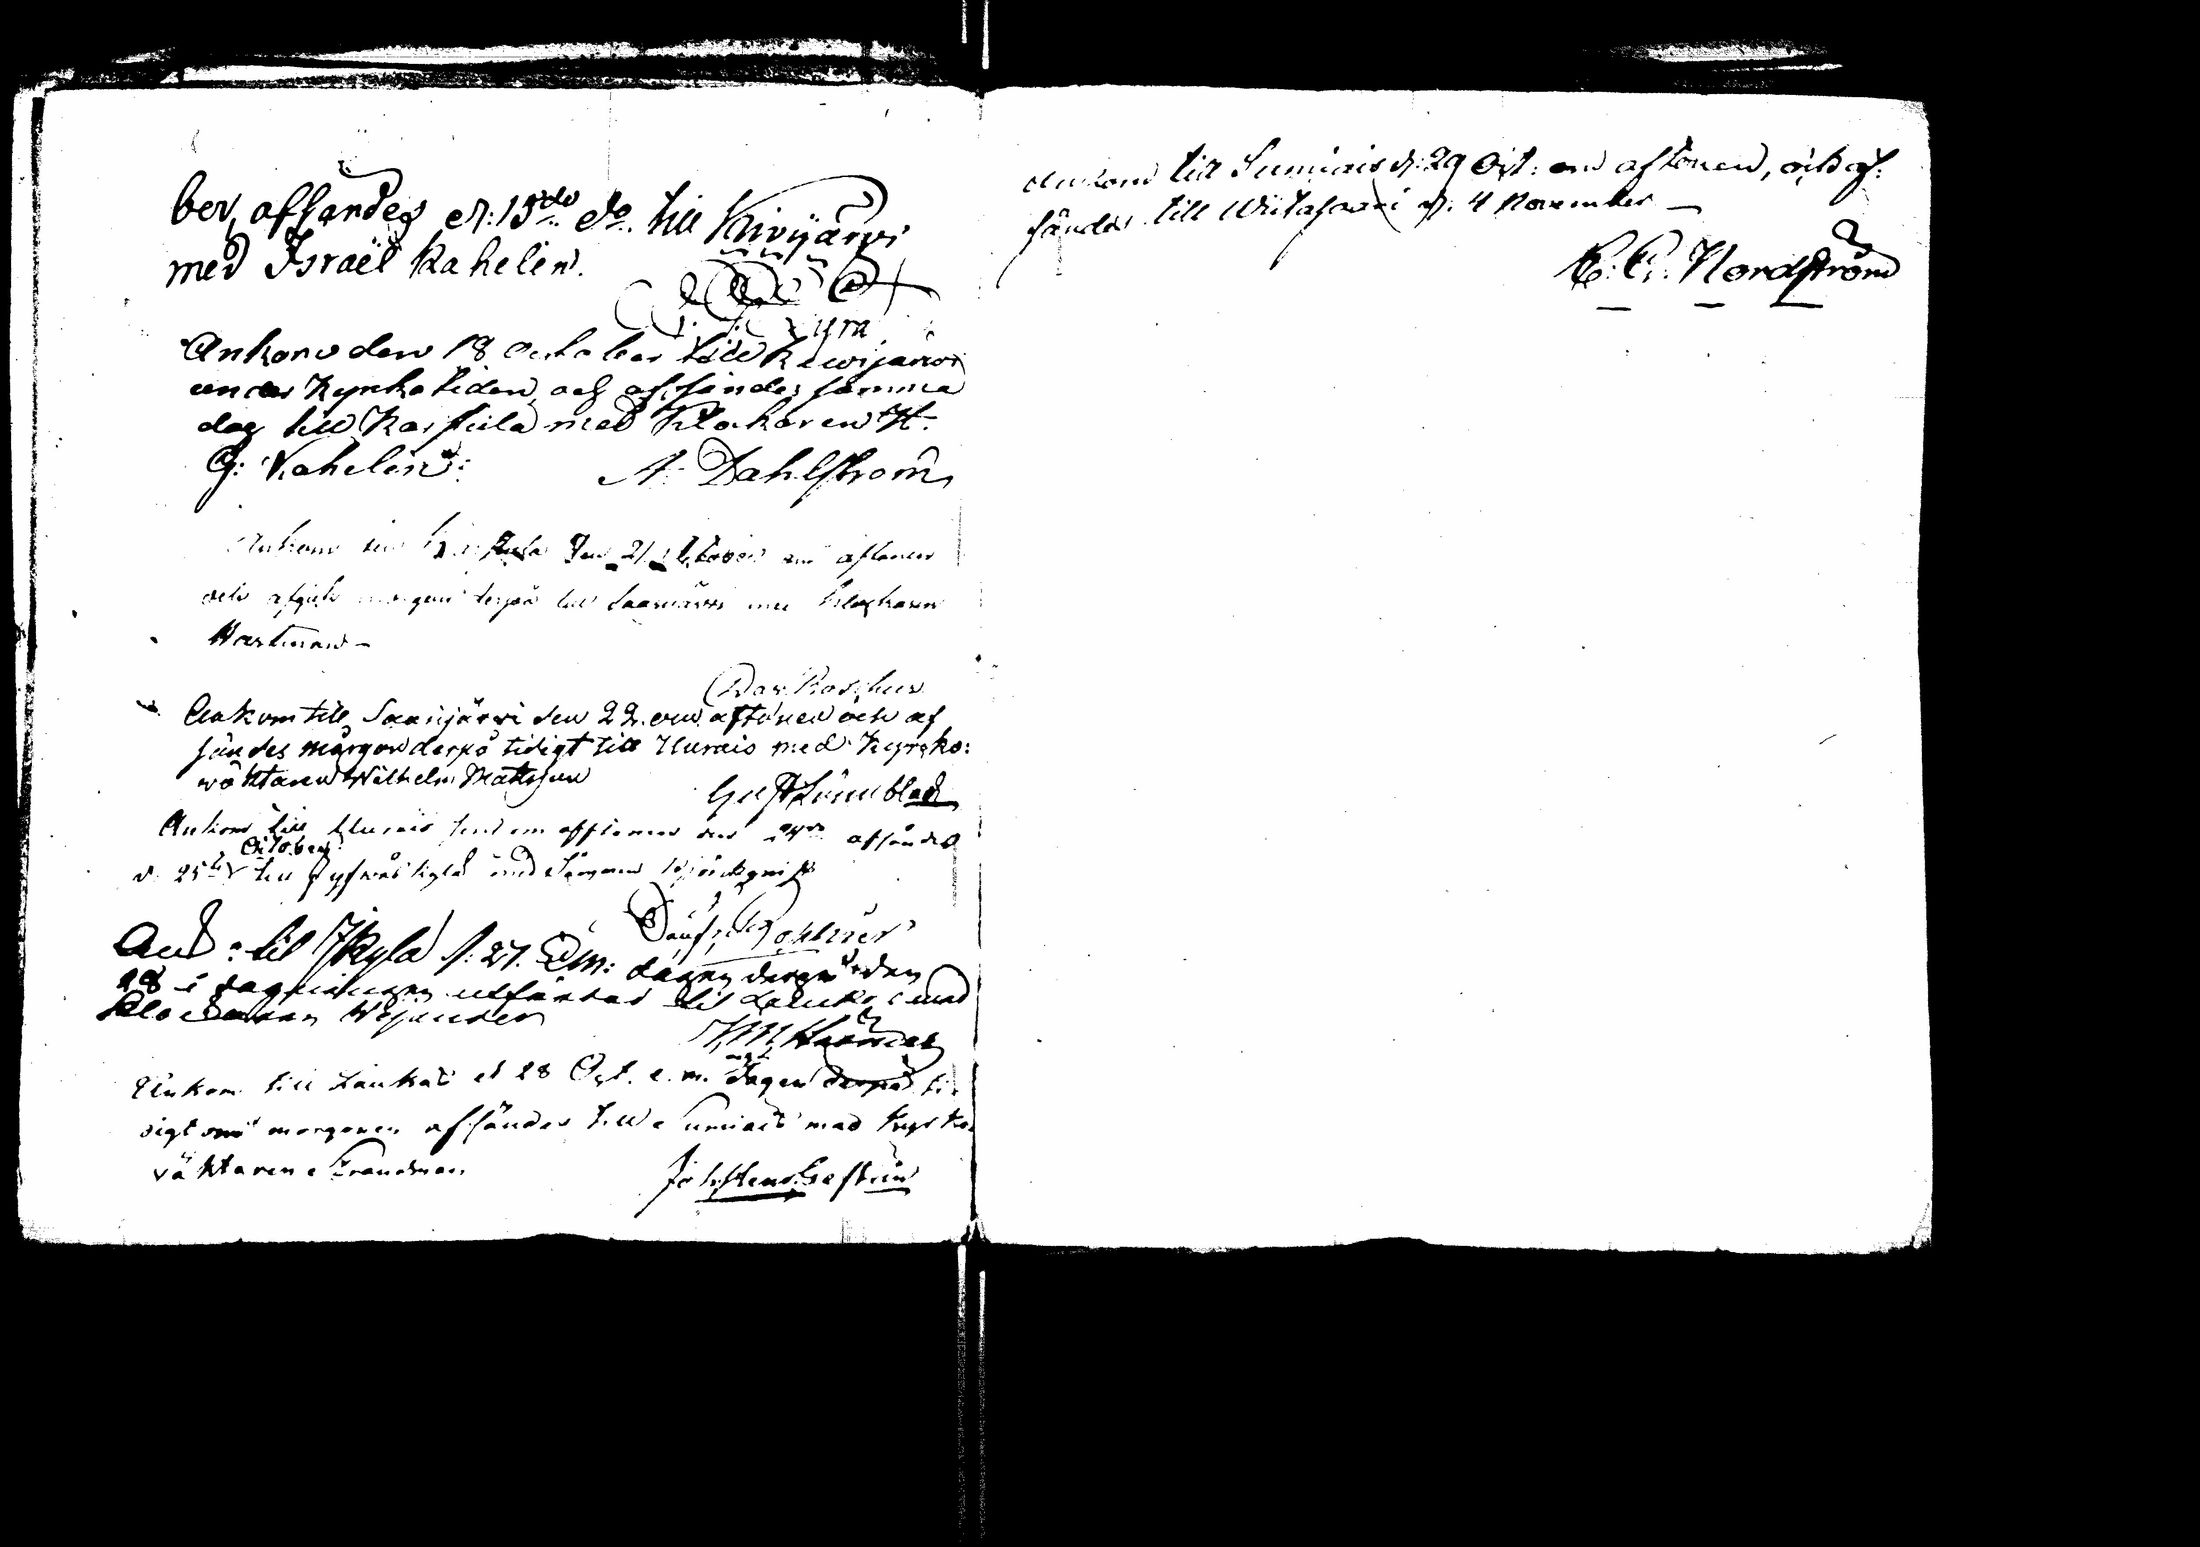 ber, afsändes d: 15de do till Kivijärvi
med Israël Kahelin.
Ankom den 18 October till Kiwijärvi
under Kyrkotiden, och afsändes samma
dag till Karstula med Klockaren H.
G: Kahelin: A: Dahlström
Ankom till Karstula den 21 October om aftonen
och afgick morgon derpå till Saarijärvi med Klockaren
Hartman –
Ankom till Saarijärvi den 22. om aftonen och af
sändes morgon derpå tidigt till Uurais med Kyrko:
wäktaren Wilhelm Mattsson
Gust Lönnblad
Ankom till Uurais sent om afftonen den 24de afsändes
October
d. 25te till Jyfwäskylä med
Ank: til JKylä d: 27. Em: dagen derpå den
28 i dagningen utfärdad til Laukas med
Klockaren
Ankom till Laukas d 28 Oct. e. m. Dagen derpå ti-
digt om morgonen afsändes till Sumiais med Kyrko-
väktaren Strandman
Ankom till Sumiais d: 29 Oct: om aftonen, och af:
sändes till Wiitasaari d. 4 November –
Nordström